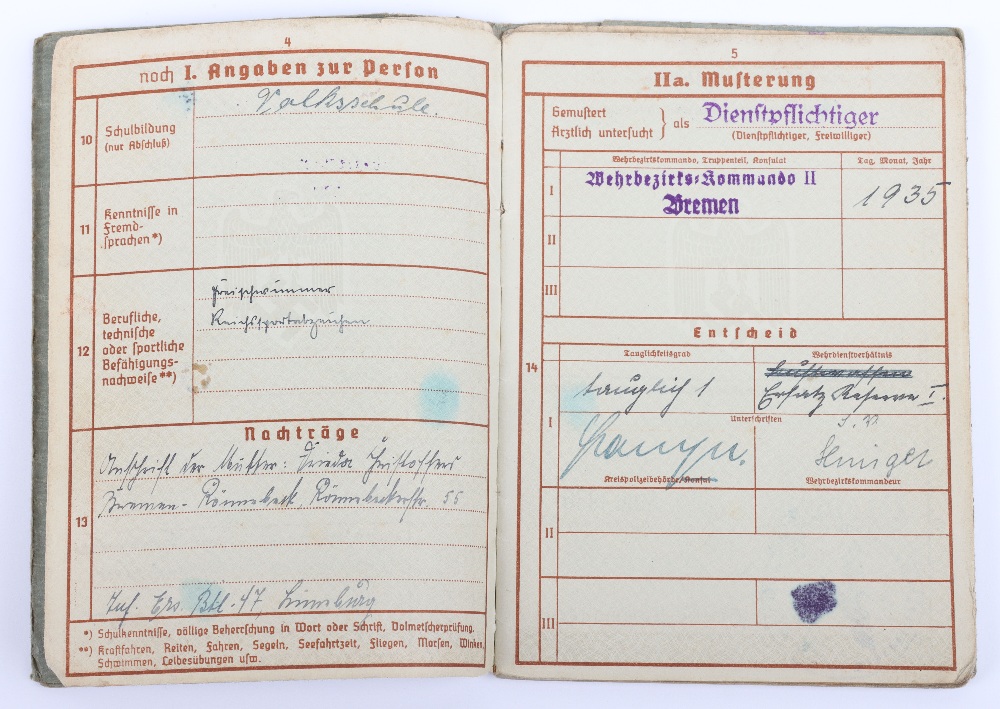 4
noch I. Angaben zur Person
10
Schulbildung
(nur Abschluß)
Volksschule.
11
Kenntnisse in
Fremd-
sprachen*)
12
Berufliche,
technische
oder sportliche
Befähigungs-
nachweise**)
Freischwimmer
Reichssportabzeichen
Nachträge
13
Anschrift der Mutter: Frieda Christoffers
Bremen-Rönnebeck, Rönnebeckerstr. 55
Inf. Ers. Btl. 47, Lüneburg
*) Schulkenntnisse, völlige Beherrschung in Wort oder Schrift, Dolmetscherprüfung.
**) Kraftfahren, Reiten, Fahren, Segeln, Seefahrtzeit, Fliegen, Morsen, Winken,
Schwimmen, Leibesübungen usw.
5
IIa. Musterung
Gemustert
Ärztlich untersucht } als Dienstpflichtiger
(Dienstpflichtiger, Freiwilliger)
Wehrbezirkskommando, Truppenteil, Konsulat
Tag, Monat, Jahr
I
Wehrbezirks-Kommando II
Bremen
1935
II
III
Entscheid
14
Tauglichkeitsgrad
Wehrdienstverhältnis
tauglich 1
Ersatz Reserve I.
I
Unterschriften
Kreispolizeibehörde, Konsul
Wehrbezirkskommandeur
II
III